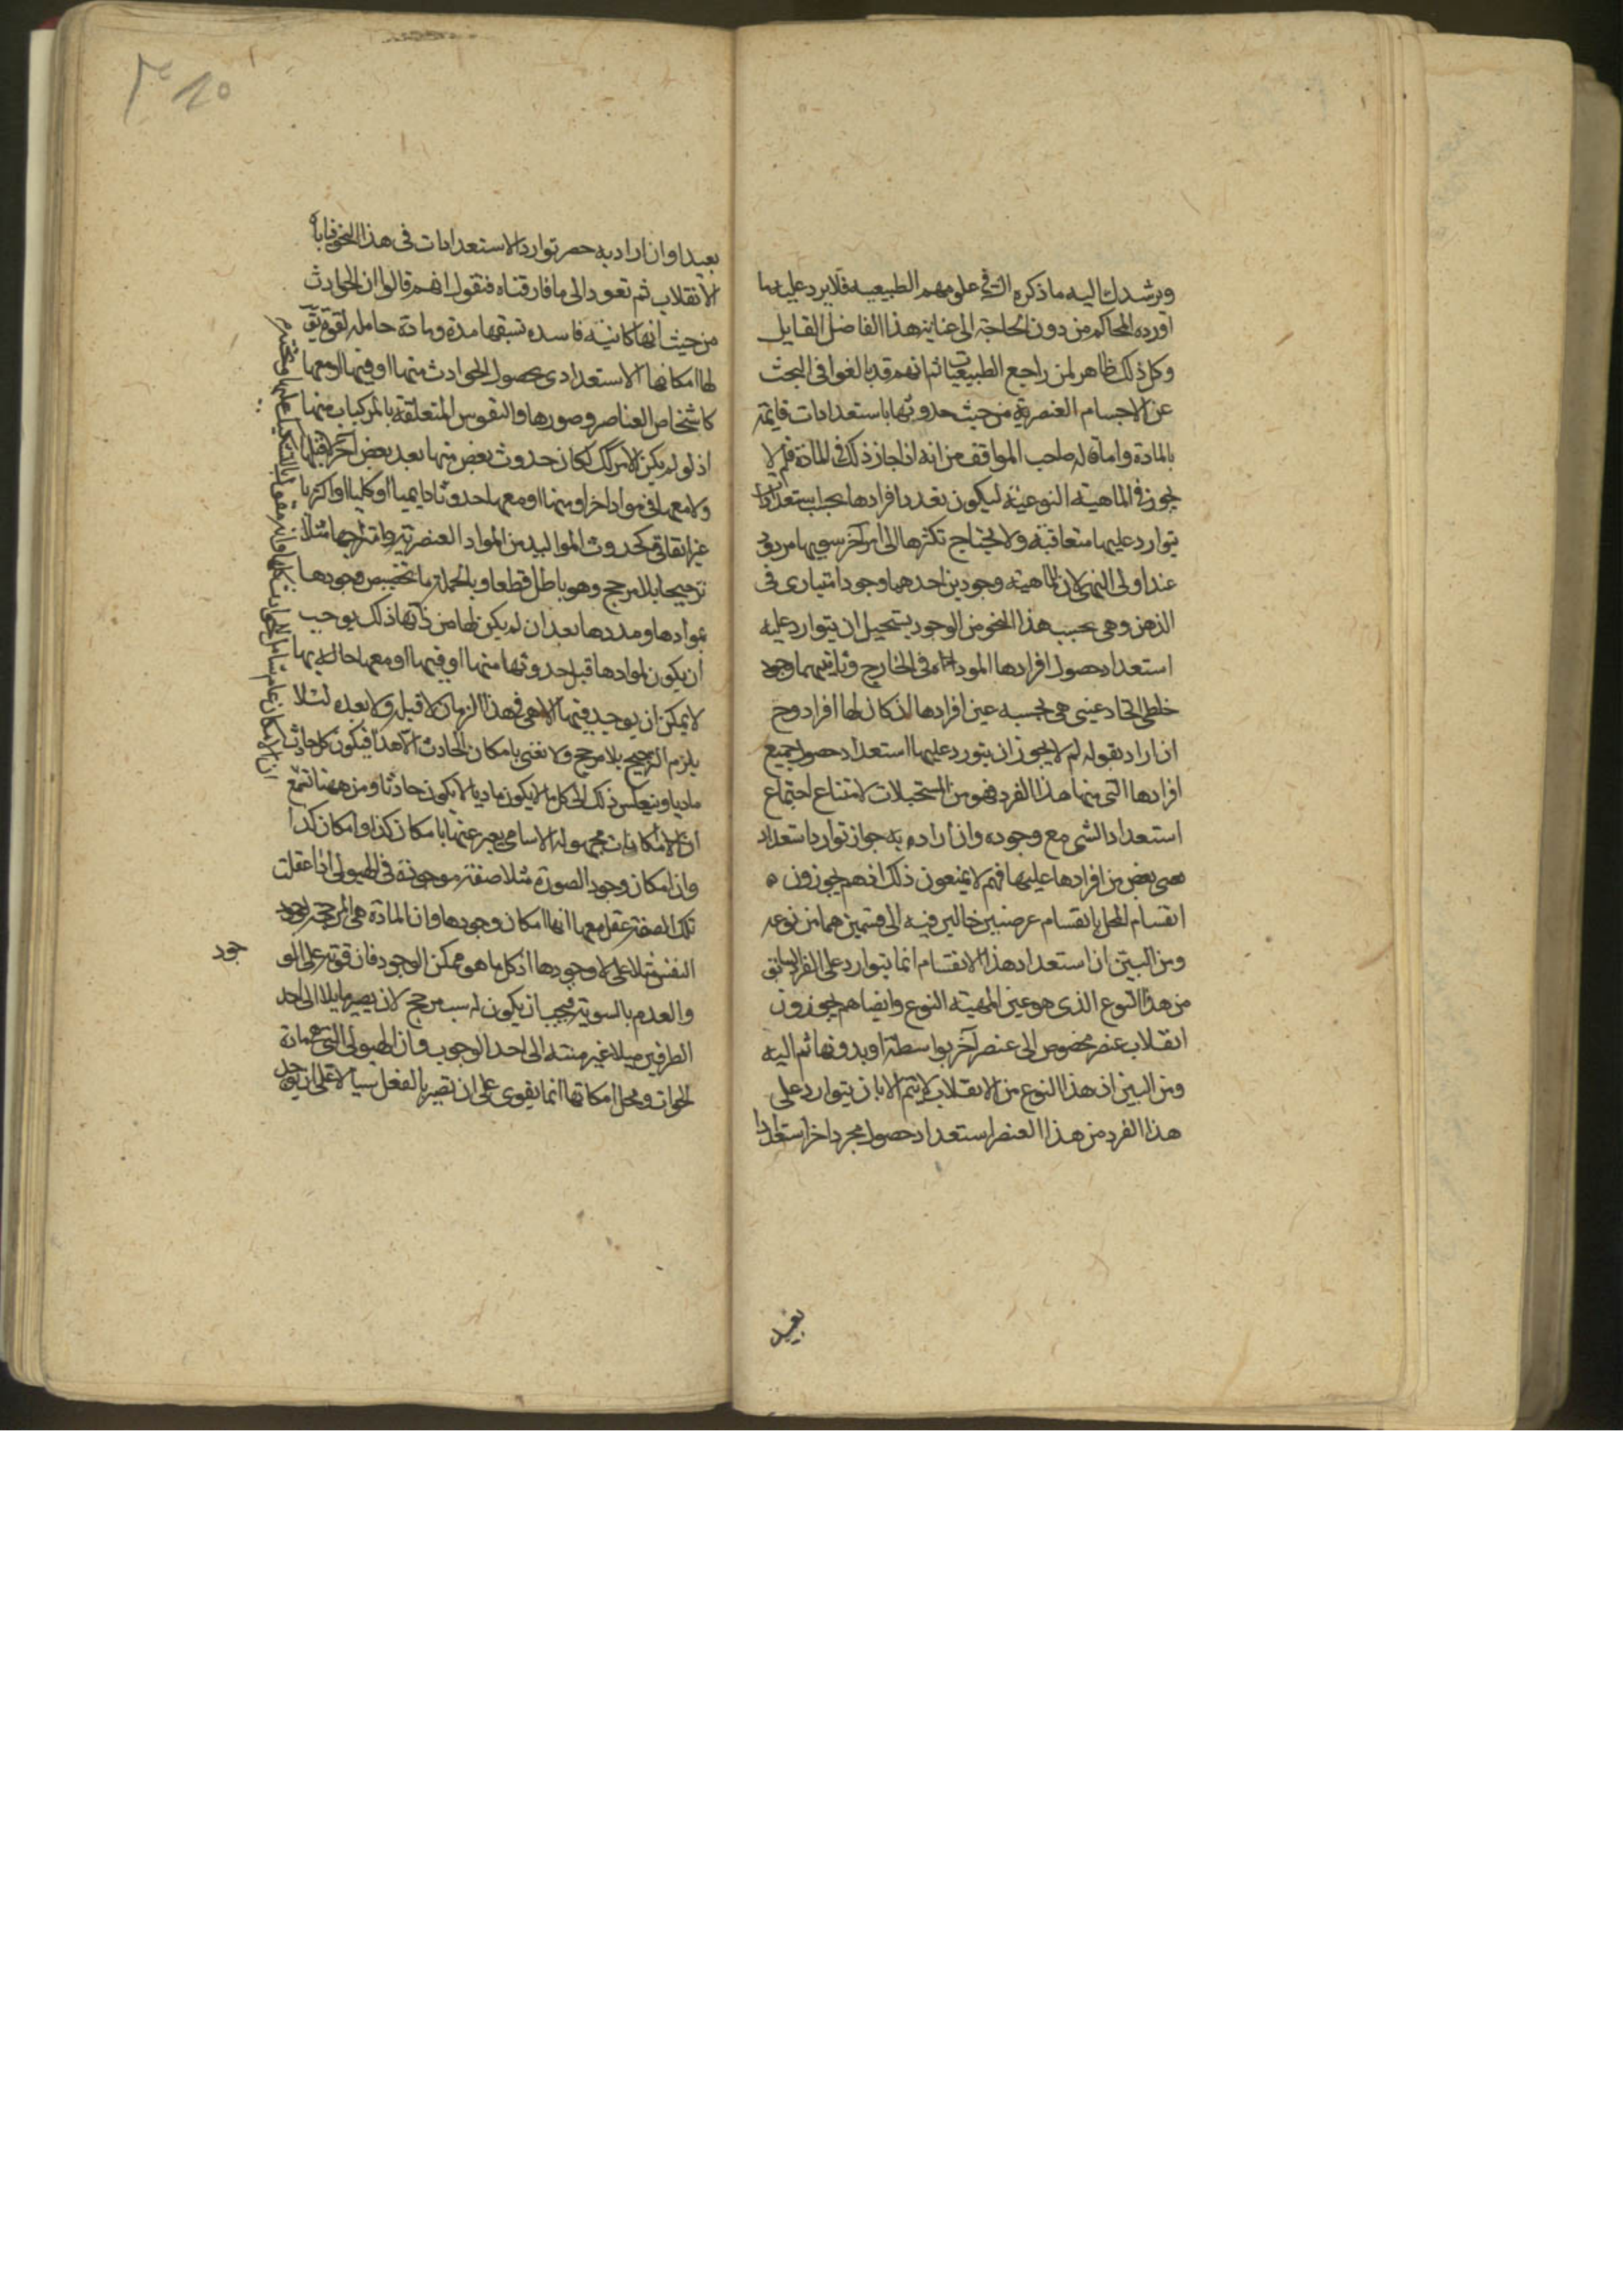 ويرشدك اليه ما ذكره الشيخ علومهم الطبيعيه فلا يرد عليه ما
اورده المحاكم من دون الحاجة الى غناية هذا الفاضل القايل
وكل ذلك ظاهر لمن راجع الطبيعيات ثم انهم قد بالغوا فى البحث
عن الاجسام العنصرية من حيث حدوثها باستعدادات قايمة
بالمادة واما قاله صاحب المواقف من انه اذا جاز ذلك فى المادة فلم لا
يجوز فى الماهية النوعية ليكون تعدد افرادها بحسب استعدادات
يتوارد عليها متعاقبة ولا يحتاج تكثرها الى امر آخر سويها مردود
عند اولى النهى لان للماهية وجودين احدهما وجود امتيازى فى
الذهن وهى بحسب هذا النحو من الوجود يستحيل ان يتوارد عليه
استعداد حصول افرادها فى الخارج وثانيهما وجود
خلطى اتحاد عينى هى بحسبه عين افرادها ان كان لها افراد وح
ان اراد بقوله لم لا يجوز ان يتورد عليها استعداد حصول جميع
افرادها التى منها هذا الفرد فهو من المستحيلات لامتناع اجتماع
استعداد الشى مع وجوده وان اراد به جواز توارد استعداد
بعض من افرادها عليها فهم لا يمنعون ذلك انهم يجوزون
انقسام المحل بانقسام عرضين حالين فيه الى قسمين هما من نوعه
ومن البين ان استعداد هذا الانقسام انما يتوارد على الفرد السابق
من هذا النوع الذى هو عين المهية النوع وايضا هم يجوزون
انقلاب عنصر مخصوص الى عنصر آخر بواسطة او بدونها ثم اليه
ومن البين ان هذا النوع من الانقلاب لا يتم الا بان يتوارد على
هذا الفرد من هذا العنصر استعداد حصول مجرد اخر استعدادا
بعيد
بعيدا وان اراد به حصر توارد الاستعدادات فى هذا النحو فاباه
الانقلاب ثم تعود الى ما فارقناه فنقول انهم قالوا ان الحوادث
من حيث انها كاينه فاسده تسبقها مدة ومادة حامله لقوة
لها امكانها الاستعدادى بحصول الحوادث منها او فيها او معها
كاشخاص العناصر وصورها والنفوس المتعلقة بالمركبات منها
اذ لو لم يكن الامر كك لكان حدوث بعض منها بعد بعض آخر لا قبلها
ولا معها فى مواد اخر او منها او معها حدوثا دايميا او كليا او اكثريا
غير اتفاقى كحدوث المواليد من المواد العنصرية وامتزاجها مثلا
ترجيحا بلا مرجح وهو باطل قطعا وبالجملة ما تخصيص وجودها
بموادها ومددها بعد ان لم يكن لها من ذاتها ذلك يوجب
ان يكون لموادها قبل حدوثها منها او فيها او معها حاله بها
لا يمكن ان يوجد فيها الا هى فى هذا الزمان لا قبله ولا بعده لئلا
يلزم الترجيح بلا مرجح ولا نعنى بامكان الحادث الا هذا فيكون كل حادث
ماديا وينعكس ذلك الى كل ما لا يكون ماديا لا يكون حادثا ومن ههنا تسمع
ان الامكانات مجهولة الاسامى يعبر عنها بامكان كذا وامكان كذا
وان امكان وجود الصورة مثلا صفة موجودة فى الهيولى اذا عقلت
تلك الصفة عقل معها انها امكان وجودها وان المادة هى المرجحة لوجود
النفس مثلا على لا وجودها اذ كل ما هو ممكن الوجود فان قوته على الو
جود
والعدم بالسوية فيجب ان يكون له سبب مرجح لان يصير مايلا الى احد
الطرفين ميلا غير منته الى احد الوجوب وان الهيولى التى هى مادة
الحوادث ومحل امكاناتها انما يقوى على ان تصير بالفعل شيئا لا على ان يوجد